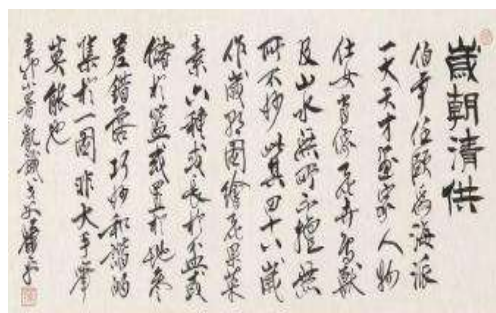 歲朝清供
伯年任頤為海派
一大天才畫家人物
仕女肖像花卉鳥獸
及山水無所不擅無
所不妙此其四十八歲
作歲朝圖繪花果菜
素六種或長於盆或
儲於籃或置於地參
差錯落巧妙和諧的
集於一圖非大手筆
莫能也
辛卯小暑